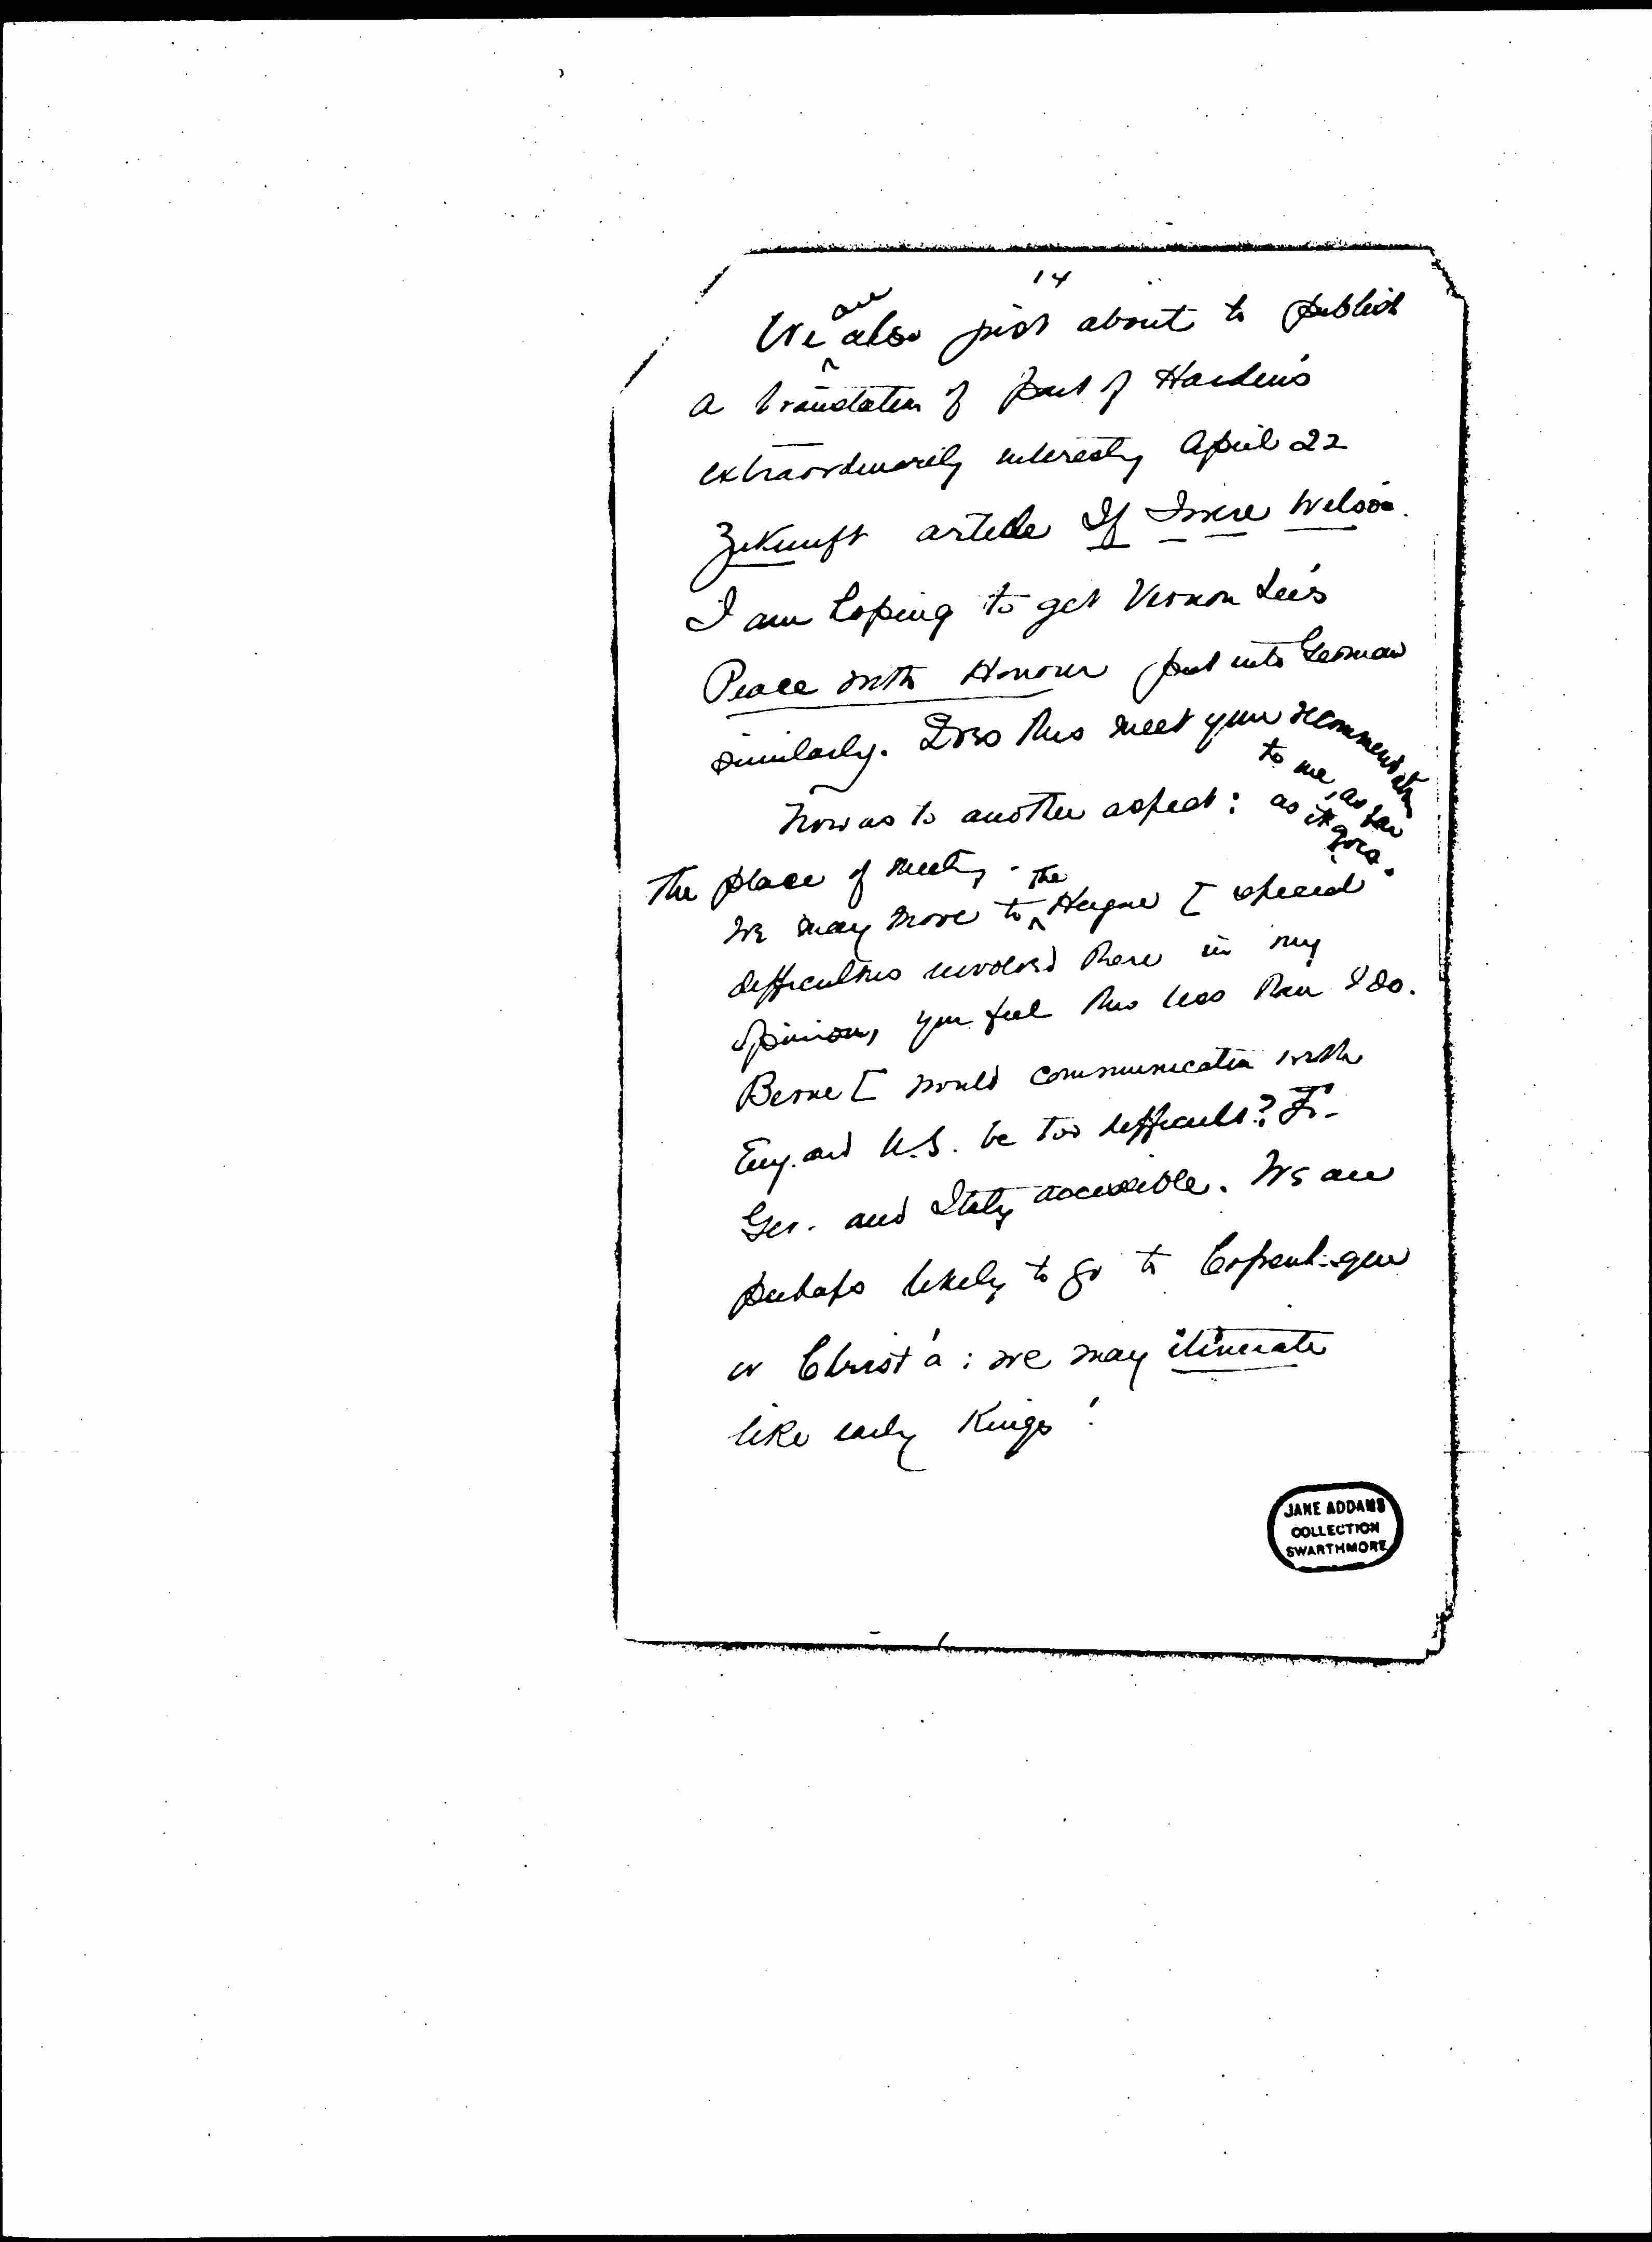 14
We are also just about to publish
a translation of part of Harden's
extraordinarily interesting April 22
Zukunft article If I were Wilson.
I am hoping to get Vernon Lee's
Peace with Honour put into German
similarly. Does this meet your recommendation
to me, as far
as it goes.
Now as to another aspect: as to
the place of meeting.
We may move to the Hague [ special
difficulties involved there in my
opinion, you feel this less than I do.
Berne [ would communication with
Eng. and U.S. be too difficult? Fr.
Ger. and Italy accessible. We are
perhaps likely to go to Copenhagen
or Christ'a: we may itinerate
like early Kings!
JANE ADDAMS
COLLECTION
SWARTHMORE